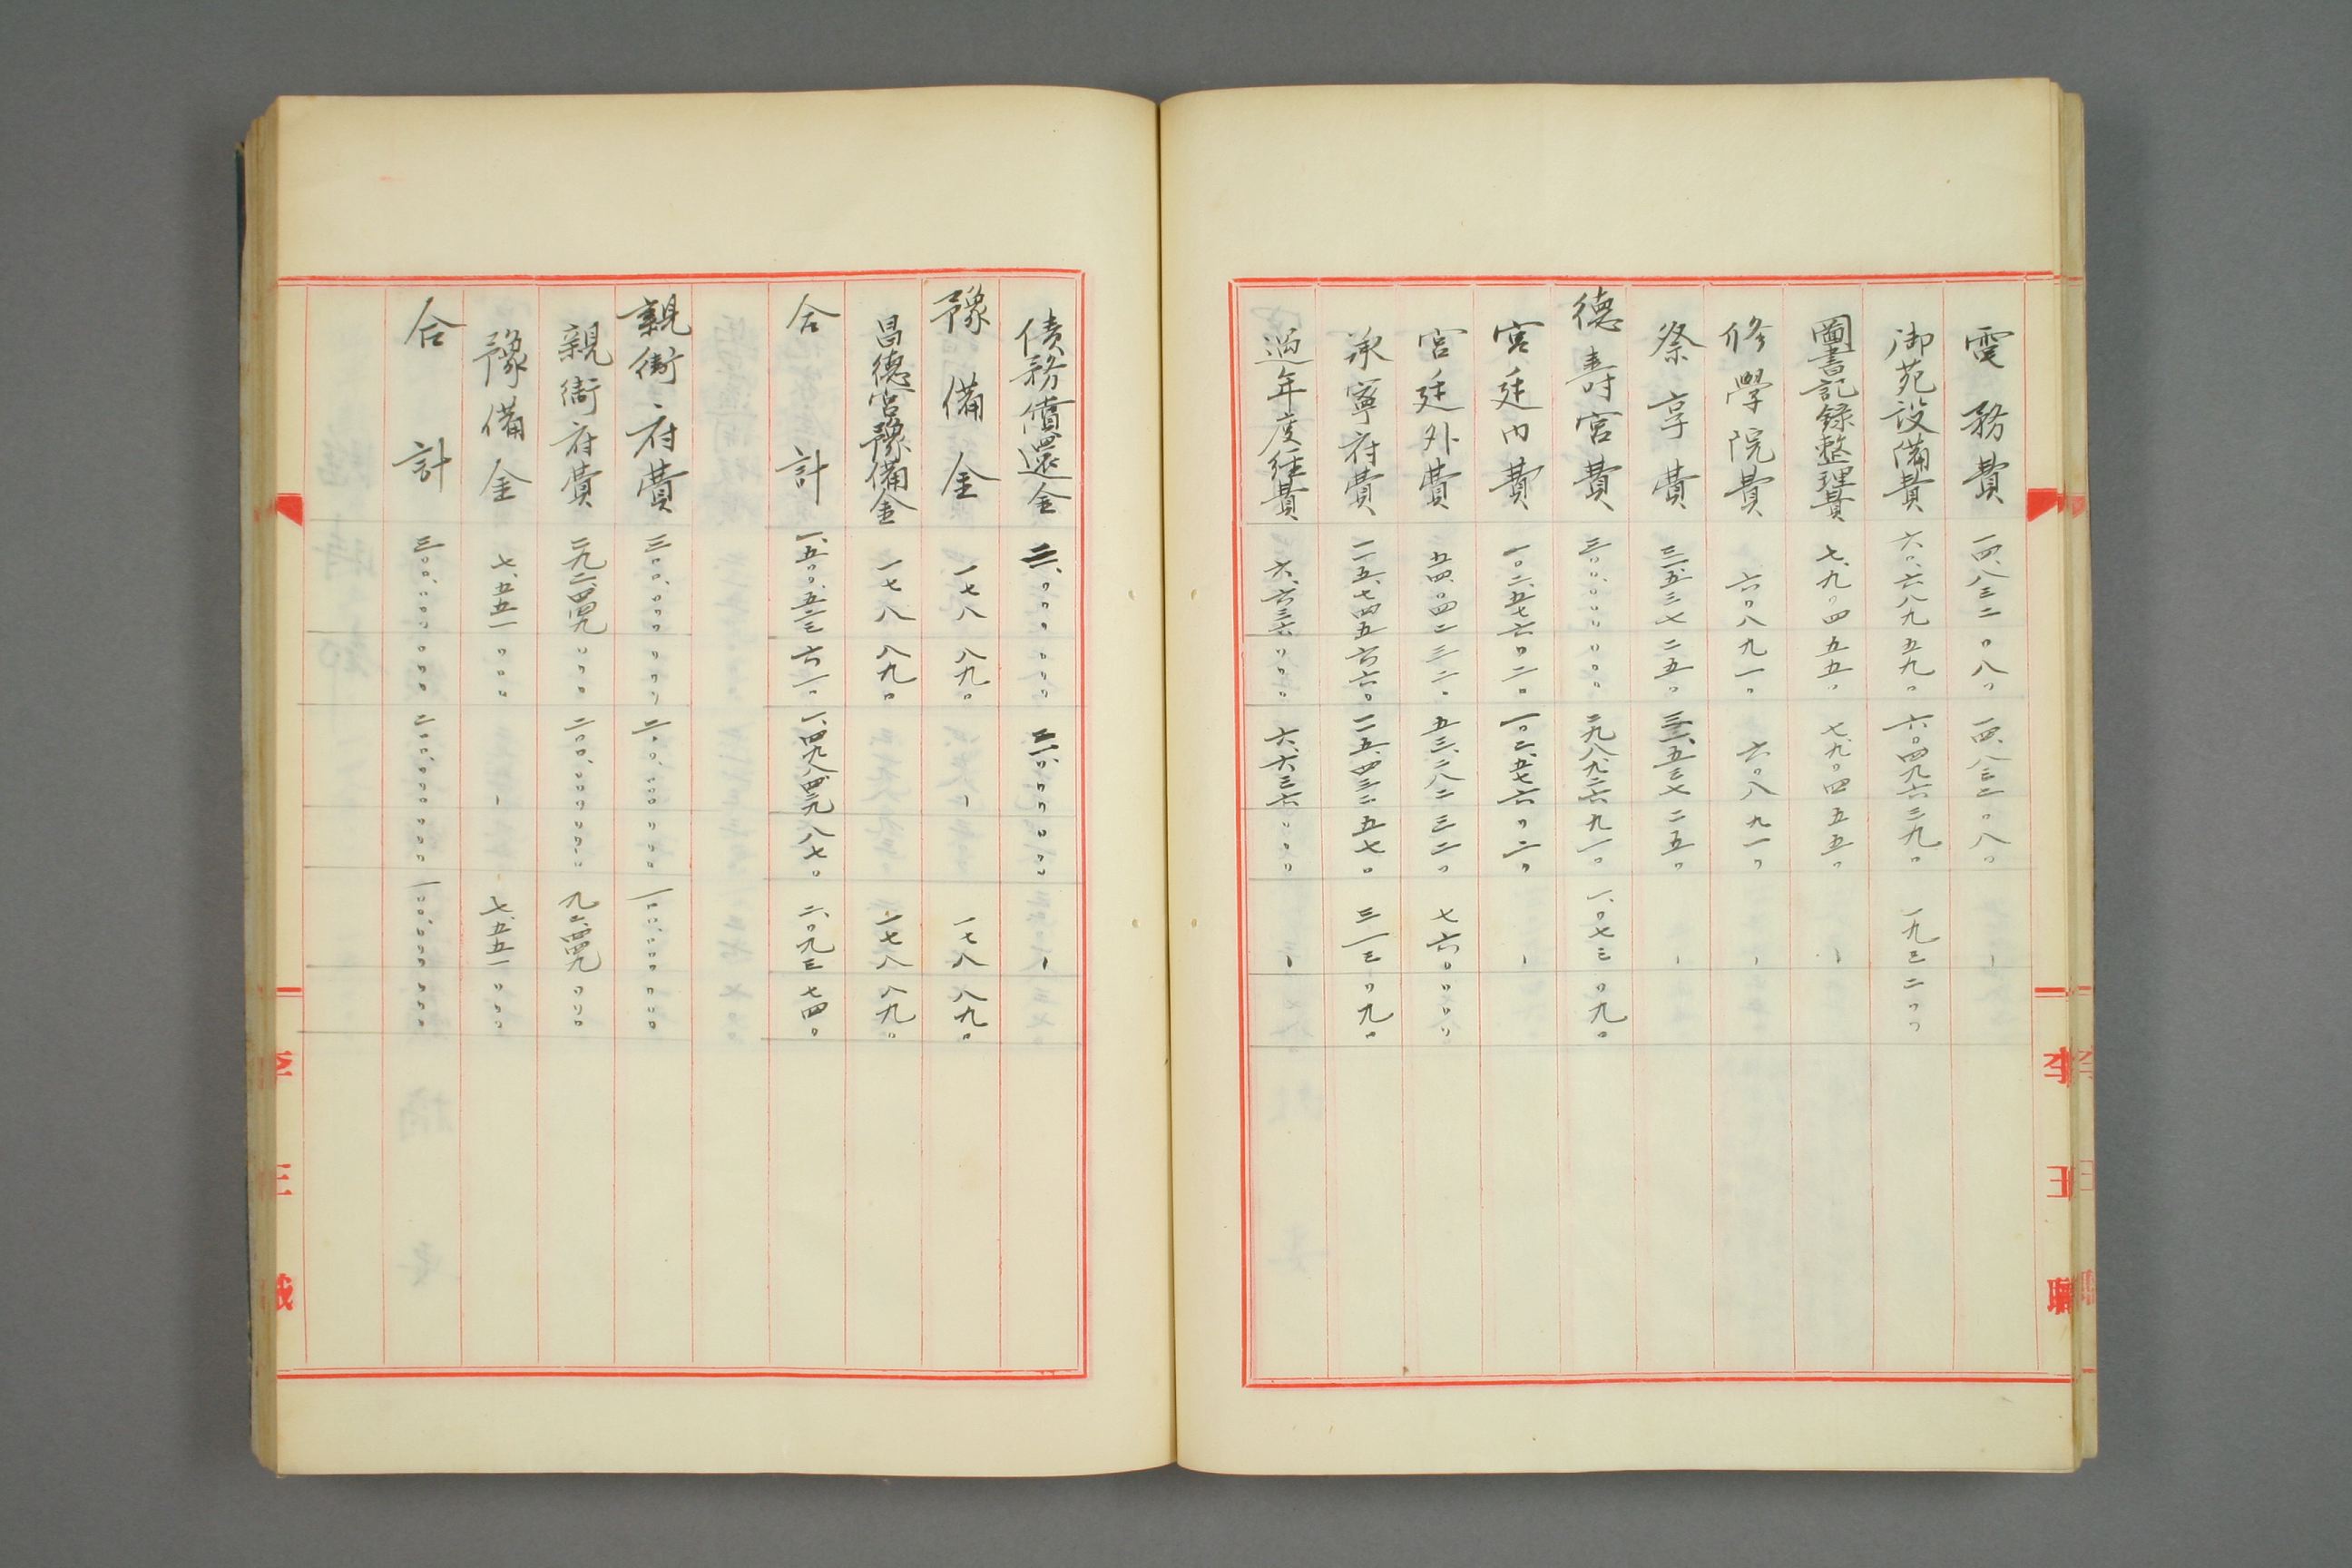 電務費 一四、八三二〇八〇 一四、八三二〇八〇 ー
御苑設備費 六〇、六八九五九〇 六〇、四九六三九〇 一九三二〇〇
圖書記録整理費 七、九〇四五五〇 七、九〇四五五〇 ー
修學院費 六〇八九一〇 六〇八九一〇 ー
祭享費 三三、五三七二五〇 三三、五三七二五〇 ー
德壽宮費 三〇〇、〇〇〇〇〇〇 二九八、九二六九一〇 一、〇七三〇九〇
宮廷内費 一〇二、五七六〇二〇 一〇二、五七六〇二〇 ー
宮廷外費 五四、〇四二三二〇 五三、二八二三二〇 七六〇〇〇〇
承寧府費 一一五、七四五六六〇 一一五、四三二五七〇 三一三〇九〇
過年度経費 六、六三六〇〇〇 六、六三六〇〇〇 ー
李王職
債務償還金 二一、〇〇〇〇〇〇 二一、〇〇〇〇〇〇 ー
豫備金 一七八八九〇 ー 一七八八九〇
昌德宮豫備金 一七八八九〇 一七八八九〇
合計 一、五〇〇、五三三六一〇 一、四九八、四三九八七〇 二、〇九三七四〇
親衛府費 三〇〇、〇〇〇〇〇〇 二〇〇、〇〇〇〇〇〇 一〇〇、〇〇〇〇〇〇
親衛府費 二九二、四四九〇〇〇 二〇〇、〇〇〇〇〇〇 九二、四四九〇〇〇
豫備金 七、五五一〇〇〇 ー 七、五五一〇〇〇
合計 三〇〇、〇〇〇〇〇〇 二〇〇、〇〇〇〇〇〇 一〇〇、〇〇〇〇〇〇
李王職